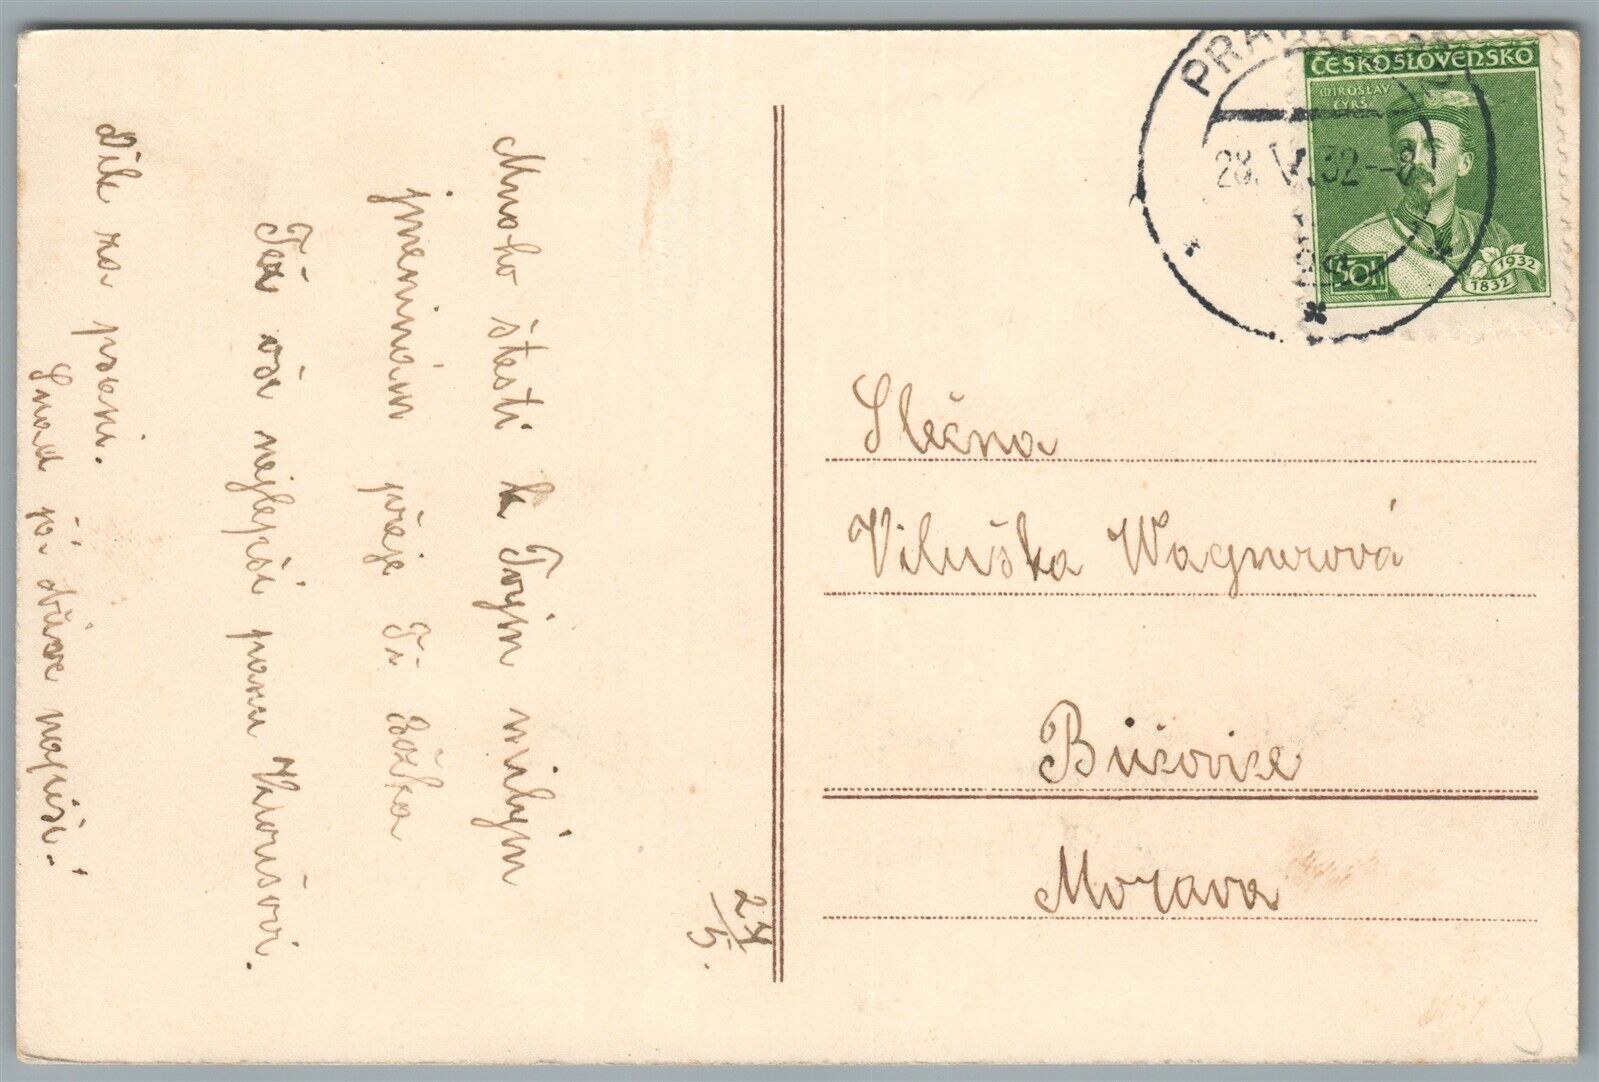 24/5.
Mnoho štestí k Tvým milým
jmeninám přeje Ti Božka
Též vše nejlepší panu Vhoušovi.
Dík za psaní.
Snad již dříve napíši.
PRAHA
28. V. 32 - 8
ČESKOSLOVENSKO
MIROSLAV
TYRŠ
50h
1832 1932
Slečna
Viluška Wagnerová
Bučovice
Morava